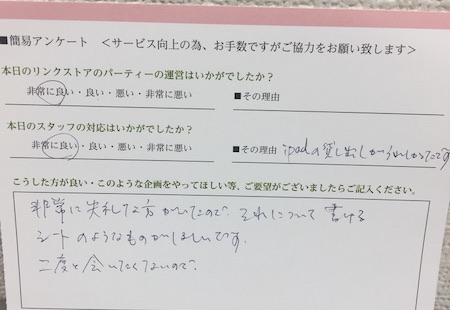 ■簡易アンケート ＜サービス向上の為、お手数ですがご協力をお願い致します＞
本日のリンクストアのパーティーの運営はいかがでしたか？
非常に良い・良い・悪い・非常に悪い ■その理由
本日のスタッフの対応はいかがでしたか？
非常に良い・良い・悪い・非常に悪い ■その理由 ipadの貸し出しがうれしかったです
こうした方が良い・このような企画をやってほしい等、ご要望がございましたらご記入ください。
非常に失礼な方がいたので、それについて書ける
シートのようなものがほしいです。
二度と会いたくないので。